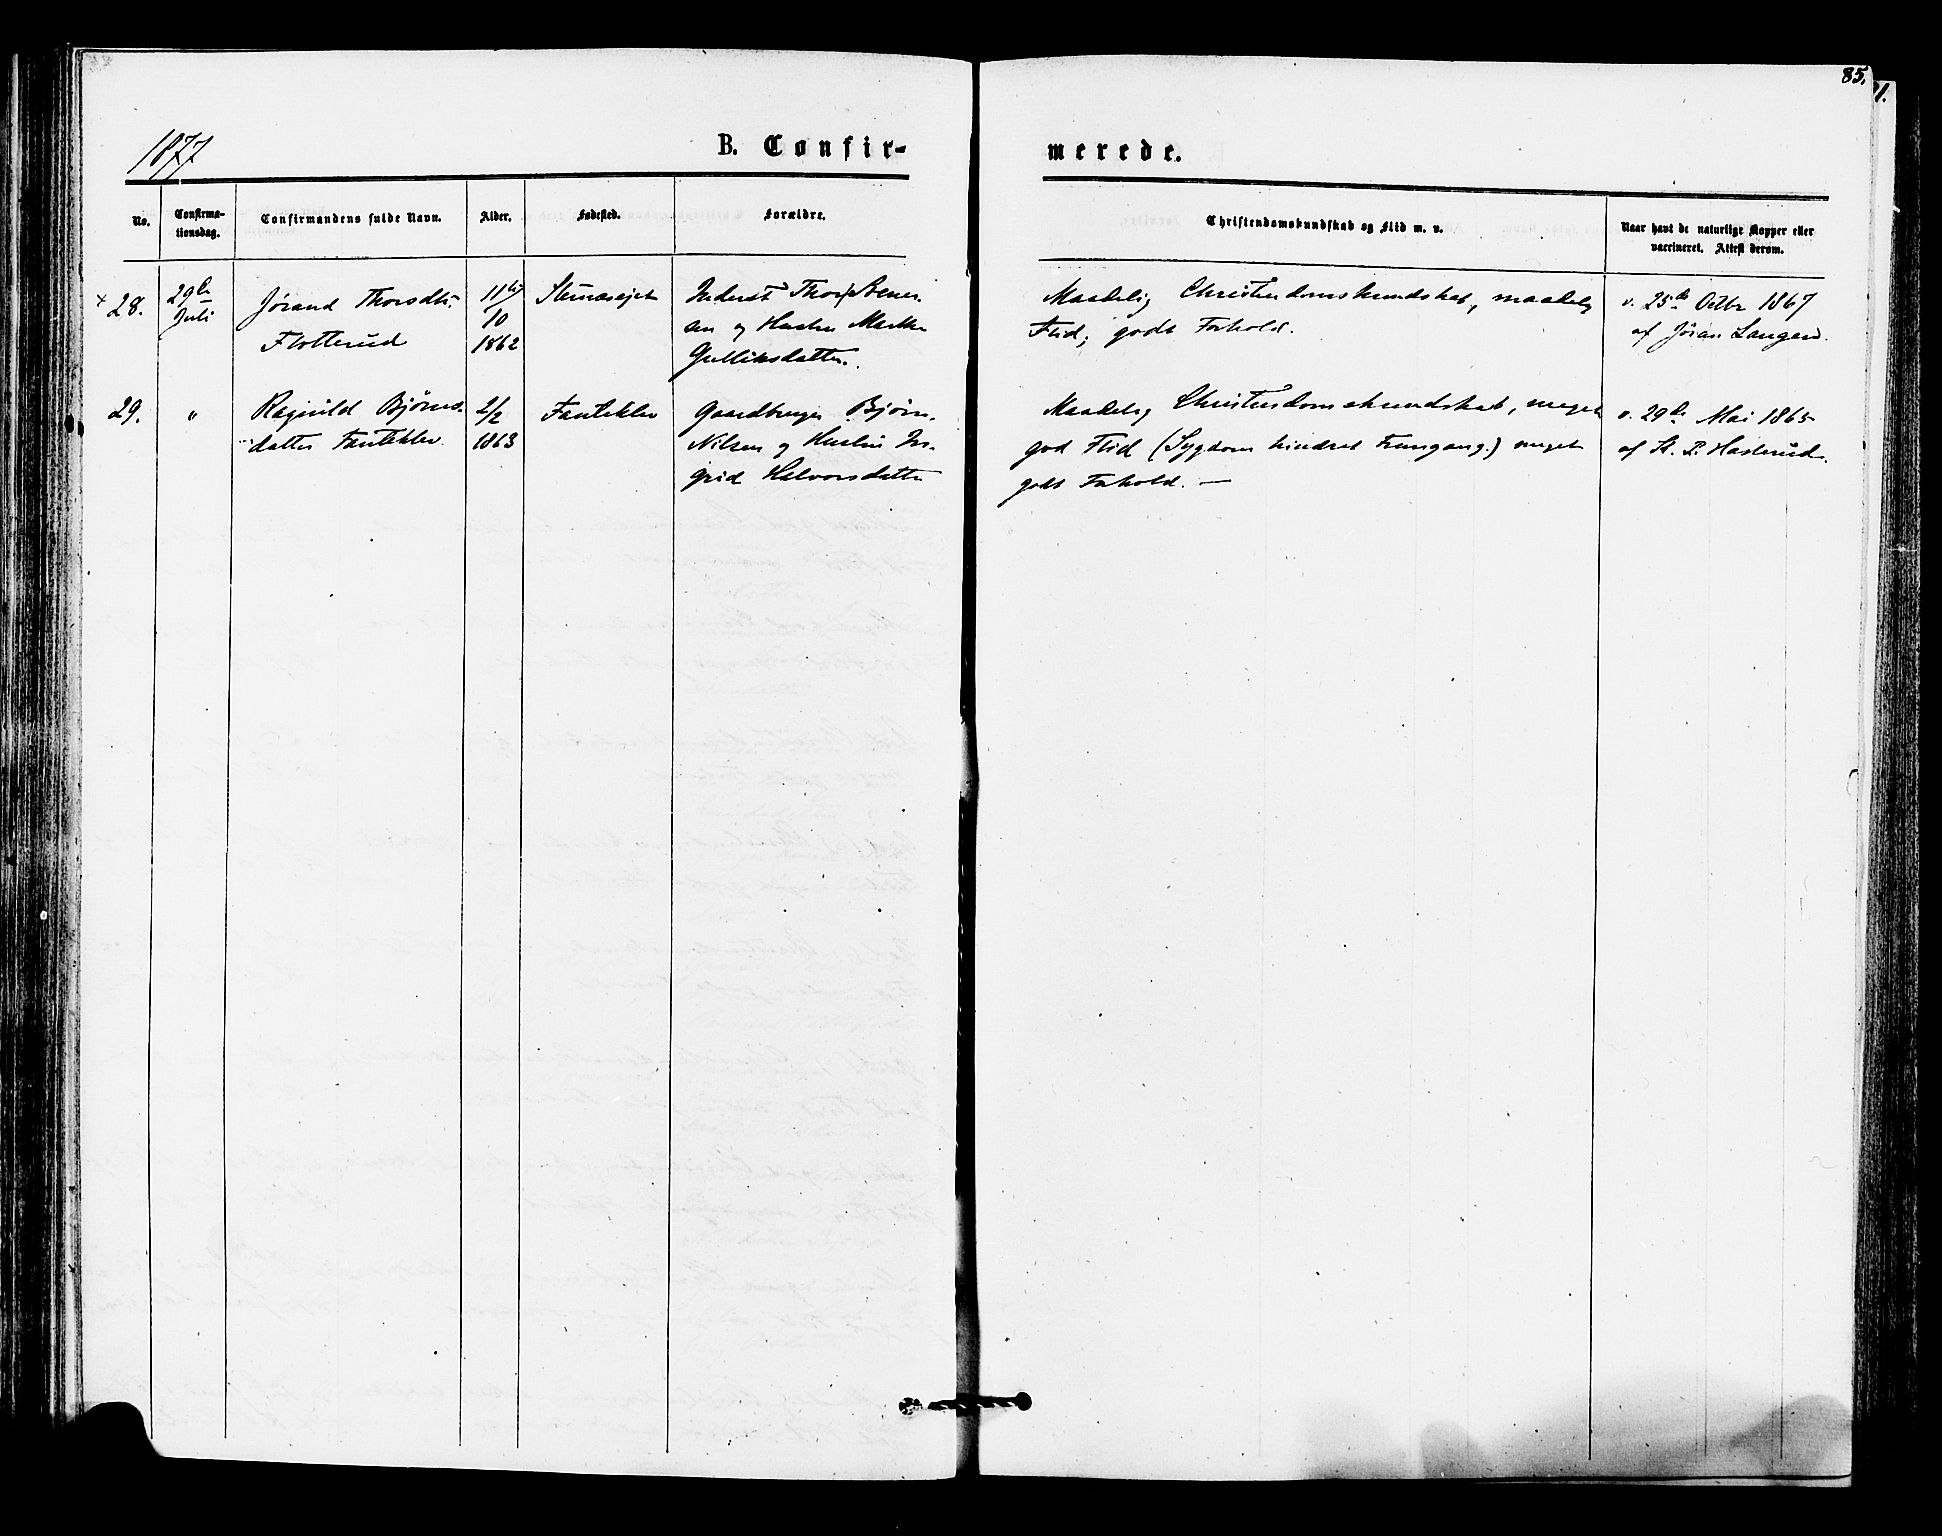 85.
1.
1877
B. Confir-
merede.
No.
Confirma-
tionsdag.
Confirmandens fulde Navn.
Alder.
Fødested.
Forældre.
Christendomskundskab og Flid m. v.
Naar havt de naturlige Kopper eller
vaccineret. Attest derom.
28.
29de
Juli
Jørand Thorsdtr.
Flotterud
11te/
10
1862
Inderst Thor
og Hustru
Gulliksdatter.
Maadelig Christendomskundskab, maadelig
Flid, godt Forhold.
v. 25de Octbr 1867
af Jøran Langerud.
29.
"
Ragnild Bjørns-
datter Fanteklev.
2/2
1863
Fanteklev
Gaardbruger Bjørn
Nilsen og Hustru In-
grid Halvorsdatter
Maadelig Christendomskundskab, meget
god Flid (Sygdom hindret Fremgang.) meget
godt Forhold. —
v. 29de Mai 1865
af H. P. Hasterud.